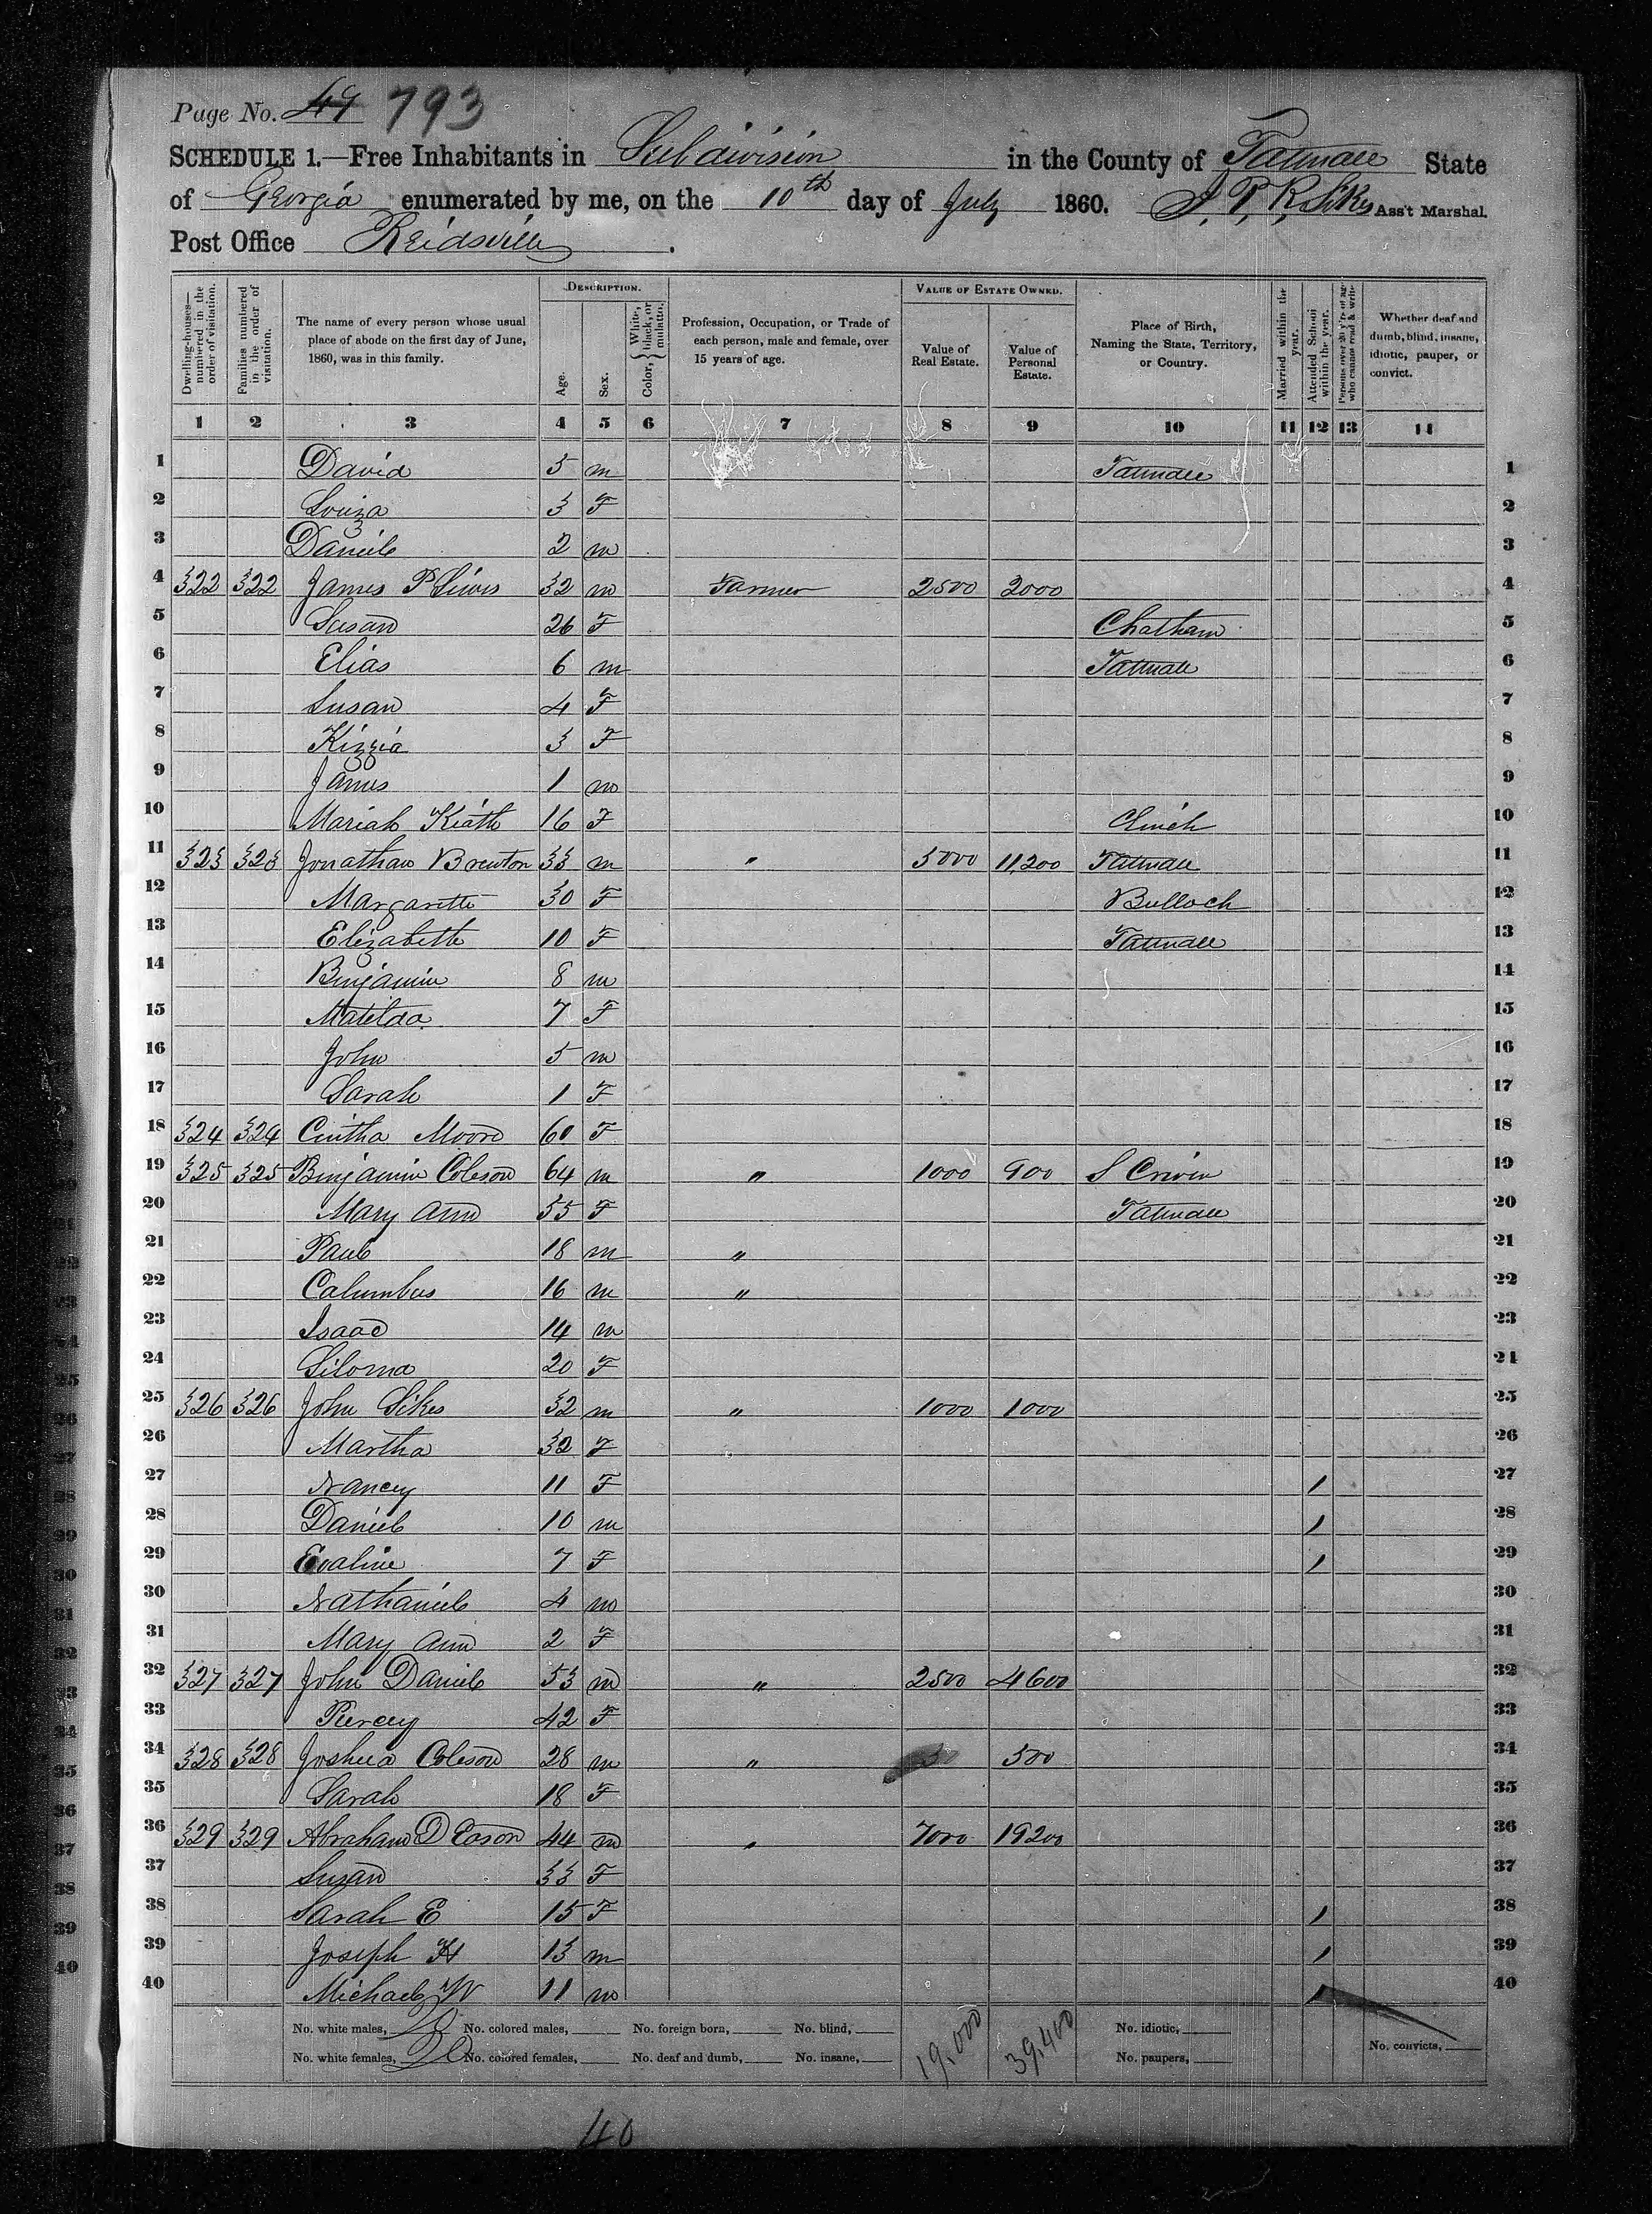 Page No. 49 793
SCHEDULE 1.—Free Inhabitants in Subdivision in the County of Tattnall State
of Georgia enumerated by me, on the 10th day of July 1860. J. P. R. Sikes Ass't Marshal.
Post Office Reidsville.
Dwelling-houses—numbered in the order of visitation. Families numbered in the order of visitation. The name of every person whose usual place of abode on the first day of June, 1860, was in this family. DESCRIPTION. Age. Sex. Color, { White, black, or mulatto. Profession, Occupation, or Trade of each person, male and female, over 15 years of age. VALUE OF ESTATE OWNED. Value of Real Estate. Value of Personal Estate. Place of Birth, Naming the State, Territory, or Country. Married within the year. Attended School within the year. Persons over 20 y'rs of age who cannot read & write Whether deaf and dumb, blind, insane, idiotic, pauper, or convict.
1 2 3 4 5 6 7 8 9 10 11 12 13 14
1 David 5 m Tattnall 1
2 Louiza 3 F 2
3 Daniel 2 m 3
4 322 322 James P Sives 32 m Farmer 2500 2000 4
5 Susan 26 F Chatham 5
6 Elias 6 m Tattnall 6
7 Susan 4 F 7
8 Kizzia 3 F 8
9 James 1 m 9
10 Mariah Kiath 16 F Clinch 10
11 323 323 Jonathan Brewton 33 m " 5000 11,200 Tattnall 11
12 Margarette 30 F Bulloch 12
13 Elizabeth 10 F Tattnall 13
14 Benjamin 8 m 14
15 Matilda 7 F 15
16 John 5 m 16
17 Sarah 1 F 17
18 324 324 Cintha Moore 60 F 18
19 325 325 Benjamin Coleson 64 m " 1000 900 S 19
20 Mary Ann 55 F Tattnall 20
21 Paul 18 m " 21
22 Calumbus 16 m " 22
23 Isaac 14 m 23
24 Siloma 20 F 24
25 326 326 John Sikes 32 m " 1000 1000 25
26 Martha 32 F 26
27 Nancy 11 F / 27
28 Daniel 10 m / 28
29 Evaline 7 F / 29
30 Nathaniel 4 m 30
31 Mary Ann 2 F 31
32 327 327 John Daniel 53 m " 2500 4600 32
33 Piercy 42 F 33
34 328 328 Joshua Coleson 28 m " 500 34
35 Sarah 18 F 35
36 329 329 Abraham D Eason 44 m " 7000 19200 36
37 Susan 33 F 37
38 Sarah E 15 F / 38
39 Joseph H 13 m / 39
40 Michael W 11 m / 40
No. white males, No. colored males, No. foreign born, No. blind, 19,000 39,400 No. idiotic,
No. white females, 20 No. colored females, No. deaf and dumb, No. insane, No. paupers, No. convicts,
40